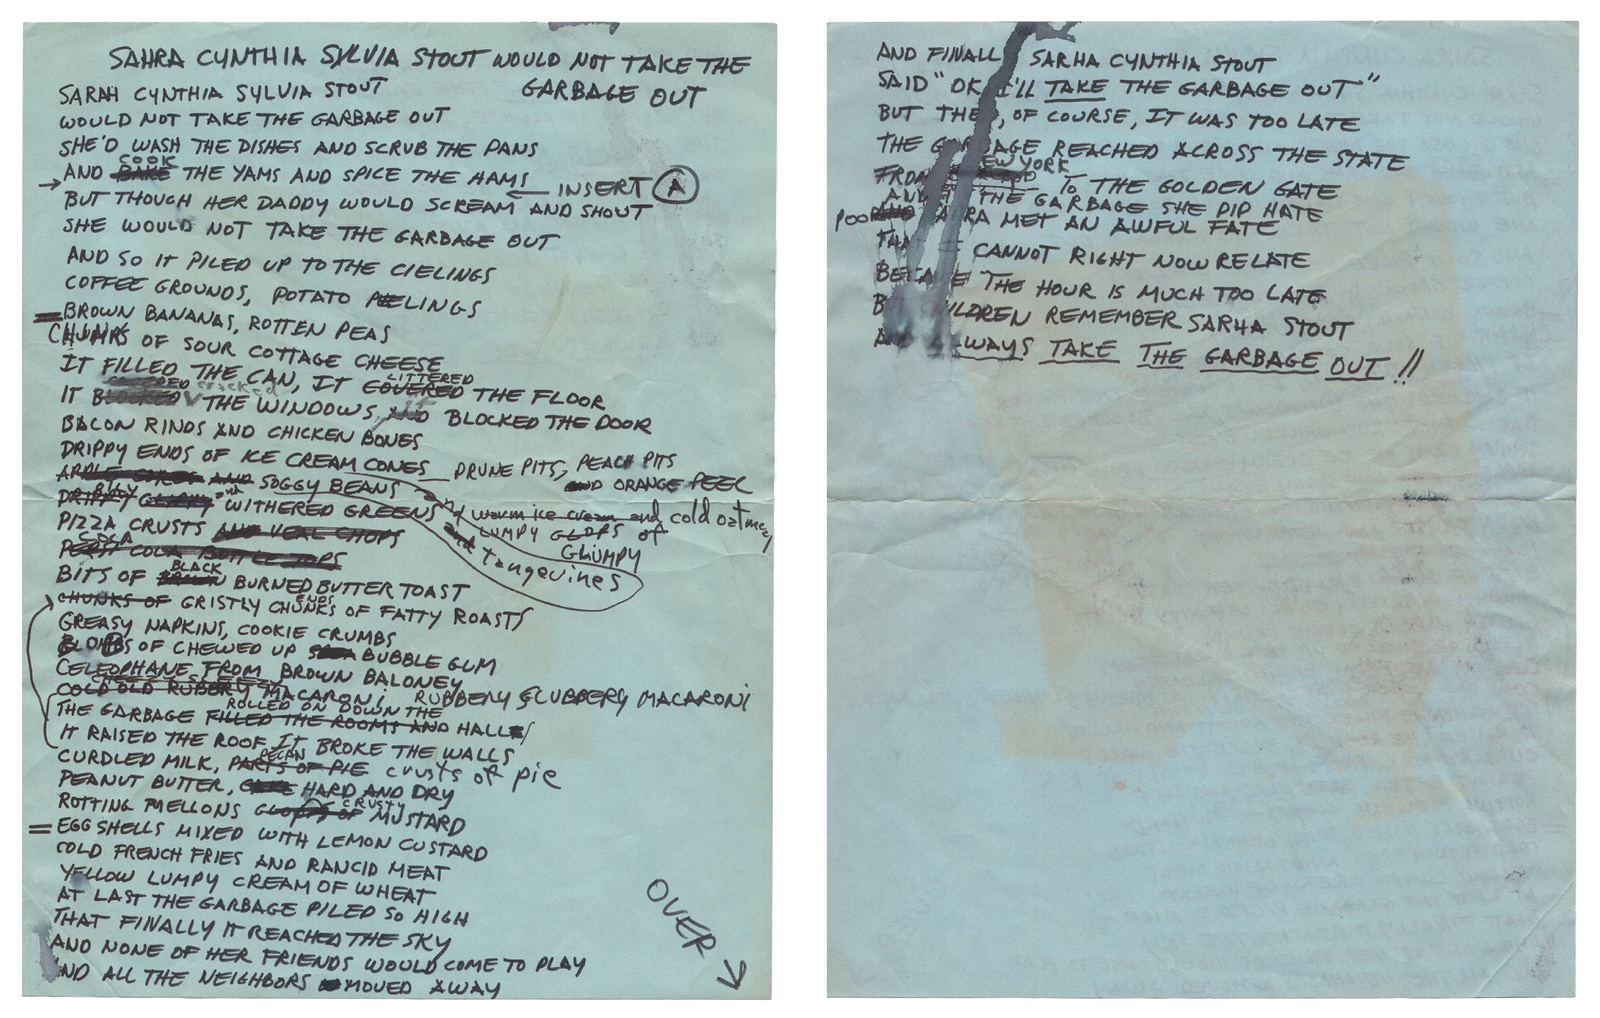 SAHRA CYNTHIA SYLVIA STOUT WOULD NOT TAKE THE
GARBAGE OUT
SARAH CYNTHIA SYLVIA STOUT
WOULD NOT TAKE THE GARBAGE OUT
SHE'D WASH THE DISHES AND SCRUB THE PANS
COOK
AND BAKE THE YAMS AND SPICE THE HAMS
INSERT A
BUT THOUGH HER DADDY WOULD SCREAM AND SHOUT
SHE WOULD NOT TAKE THE GARBAGE OUT
AND SO IT PILED UP TO THE CIELINGS
COFFEE GROUNDS, POTATO PEELINGS
BROWN BANANAS, ROTTEN PEAS
CHUNKS OF SOUR COTTAGE CHEESE
LITTERED
IT FILLED THE CAN, IT COVERED THE FLOOR
COVERED cracked
IT BLOCKED THE WINDOWS, AND BLOCKED THE DOOR
BACON RINDS AND CHICKEN BONES
DRIPPY ENDS OF ICE CREAM CONES PRUNE PITS, PEACH PITS
AND ORANGE PEEL
APPLE CORES AND SOGGY BEANS and tangerines
DRIPPY WITHERED GREENS warm ice cream and cold oatmeal
LUMPY GLOPS of
GLUMPY
PIZZA CRUSTS AND VEAL CHOPS
COLA
PEPSI COLA BOTTLE TOPS
BLACK
BITS OF BROWN BURNED BUTTER TOAST
ENDS
CHUNKS OF GRISTLY CHUNKS OF FATTY ROASTS
GREASY NAPKINS, COOKIE CRUMBS
BLOBBS OF CHEWED UP BUBBLE GUM
CELEOPHANE FROM BROWN BALONEY
COLD OLD RUBERY MACARONI RUBBERY BLUBBERY MACARONI
ROLLED ON DOWN THE
THE GARBAGE FILLED THE ROOMS AND HALLS
IT RAISED THE ROOF IT BROKE THE WALLS
PECAN
CURDLED MILK, PARTS OF PIE crusts of pie
PEANUT BUTTER, CAKE HARD AND DRY
CRUSTY
ROTTING MELLONS GLOPPS OF MUSTARD
EGG SHELLS MIXED WITH LEMON CUSTARD
COLD FRENCH FRIES AND RANCID MEAT
YELLOW LUMPY CREAM OF WHEAT
AT LAST THE GARBAGE PILED SO HIGH
THAT FINALLY IT REACHED THE SKY
AND NONE OF HER FRIENDS WOULD COME TO PLAY
AND ALL THE NEIGHBORS MOVED AWAY
OVER
AND FINALL SARHA CYNTHIA STOUT
SAID "OK I'LL TAKE THE GARBAGE OUT"
BUT THEN, OF COURSE, IT WAS TOO LATE
THE GARBAGE REACHED ACROSS THE STATE
NEW YORK
FROM TO THE GOLDEN GATE
AND THE GARBAGE SHE DID HATE
POOR SAHRA MET AN AWFUL FATE
THAT I CANNOT RIGHT NOW RELATE
BECAUSE THE HOUR IS MUCH TOO LATE
BUT CHILDREN REMEMBER SARHA STOUT
AND ALWAYS TAKE THE GARBAGE OUT!!